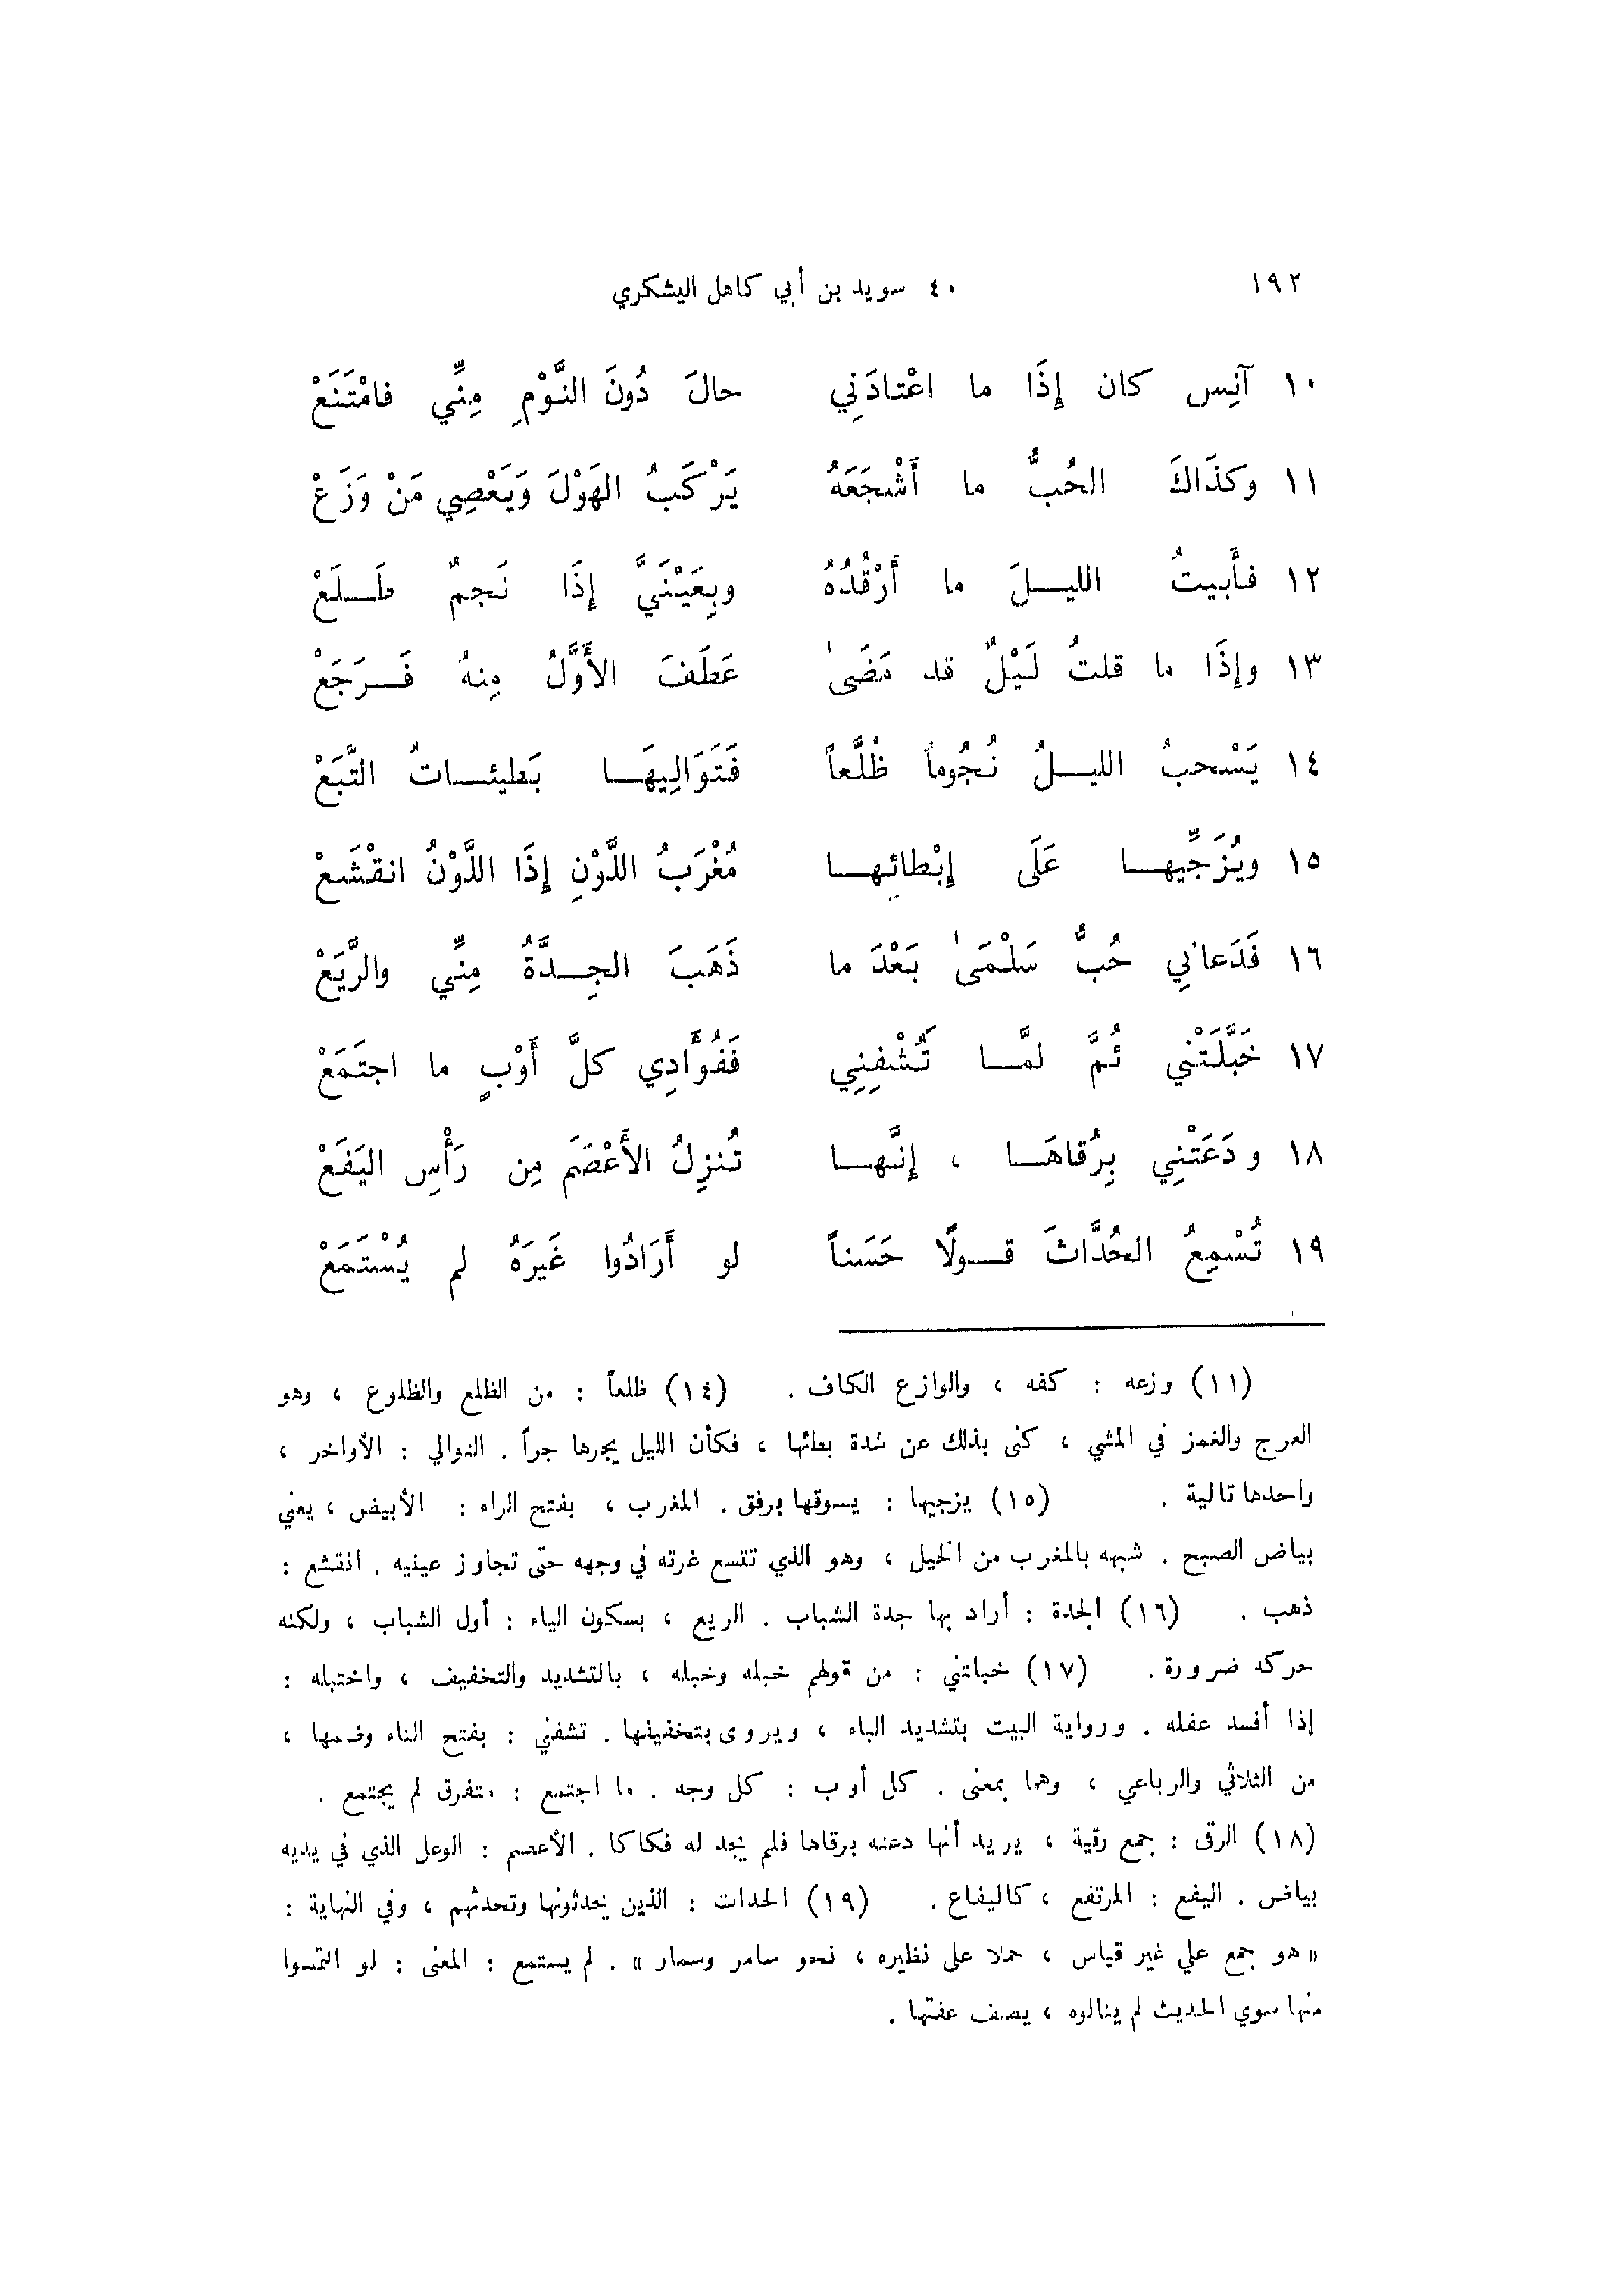 ١٩٢
٤٠ سويد بن أبي كاهل اليشكري
١٠ آنِس كان إِذَا ما اعْتادَنِي حالَ دُونَ النَّوْمِ مِنِّي فامْتَنَعْ
١١ وكذَاكَ الحُبُّ ما أَشْجَعَهُ يَرْكَبُ الهَوْلَ وَيَعْصِي مَنْ وَزَعْ
١٢ فأَبيتُ الليلَ ما أَرْقُدُهُ وبِعَيْنَيَّ إِذَا نَجمٌ طَلَعْ
١٣ وإِذَا ما قلتُ لَيْلٌ قد مَضَىٰ عَطَفَ الأَوَّلُ مِنهُ فَرَجَعْ
١٤ يَسْحبُ الليلُ نُجُوماً ظُلَّعاً فَتَوَالِيهَا بَطيئاتُ التَّبَعْ
١٥ ويُزَجِّيها عَلَى إِبْطائِها مُغْرَبُ اللَّوْنِ إِذَا اللَّوْنُ انقْشَعْ
١٦ فَدَعانِي حُبُّ سَلْمَىٰ بَعْدَ ما ذَهَبَ الجِدَّةُ مِنِّي والرَّيَعْ
١٧ خَبَّلَتْنِي ثُمَّ لمَّا تَُشْفِنِي فَفُوَّادِي كلَّ أَوْبٍ ما اجتَمَعْ
١٨ ودَعَتْنِي بِرُقاهَا ، إِنَّها تُنزِلُ الأَعْصَمَ مِن رَأْسِ اليَفَعْ
١٩ تُسْمِعُ الحُدَّاثَ قولًا حَسَناً لو أَرَادُوا غَيرَهُ لم يُسْتَمَعْ
(١١) وزعه : كفه ، والوازع الكاف . (١٤) ظلعاً : من الظلع والظلوع ، وهو
العرج والغمز في المشي ، كنى بذلك عن شدة بطائها ، فكأن الليل يجرها جراً . التوالي : الأواخر ،
واحدها تالية . (١٥) يزجيها : يسوقها برفق . المغرب ، بفتح الراء : الأبيض ، يعني
بياض الصبح . شبهه بالمغرب من الخيل ، وهو الذي تتسع غرته في وجهه حتى تجاوز عينيه . انقشع :
ذهب . (١٦) الجدة : أراد بها جدة الشباب . الريع ، بسكون الياء : أول الشباب ، ولكنه
حركه ضرورة . (١٧) خبلتني : من قولهم خبله وخبله ، بالتشديد والتخفيف ، واختبله :
إذا أفسد عقله . ورواية البيت بتشديد الباء ، ويروى بتخفيفها . تشفني : بفتح التاء وضمها ،
من الثلاثي والرباعي ، وهما بمعنى . كل أوب : كل وجه . ما اجتمع : متفرق لم يجتمع .
(١٨) الرقى : جمع رقية ، يريد أنها دعته برقاها فلم يجد له فكاكا . الأعصم : الوعل الذي في يديه
بياض . اليفع : المرتفع ، كاليفاع . (١٩) الحداث : الذين يحدثونها وتحدثهم ، وفي النهاية :
« هو جمع علي غير قياس ، حملا على نظيره ، نحو سامر وسمار » . لم يستمع : المعنى : لو التمسوا
منها سوي الحديث لم ينالوه ، يصف عفتها .